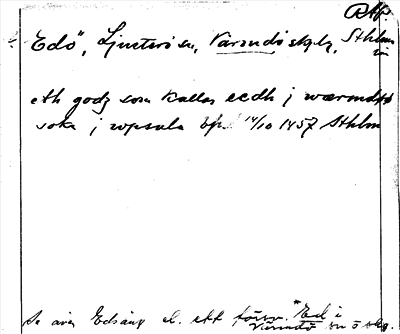 RAp.
Edö, Ljusterö sn, Värmdö skg, Sthlms
län
eth godz som kallas eedh j wærmdø
sokn j wpsala bp. 14/10 1457 Sthlm
Se även Edsäng el. ett försv. *Ed i
Värmdö sn o skg.